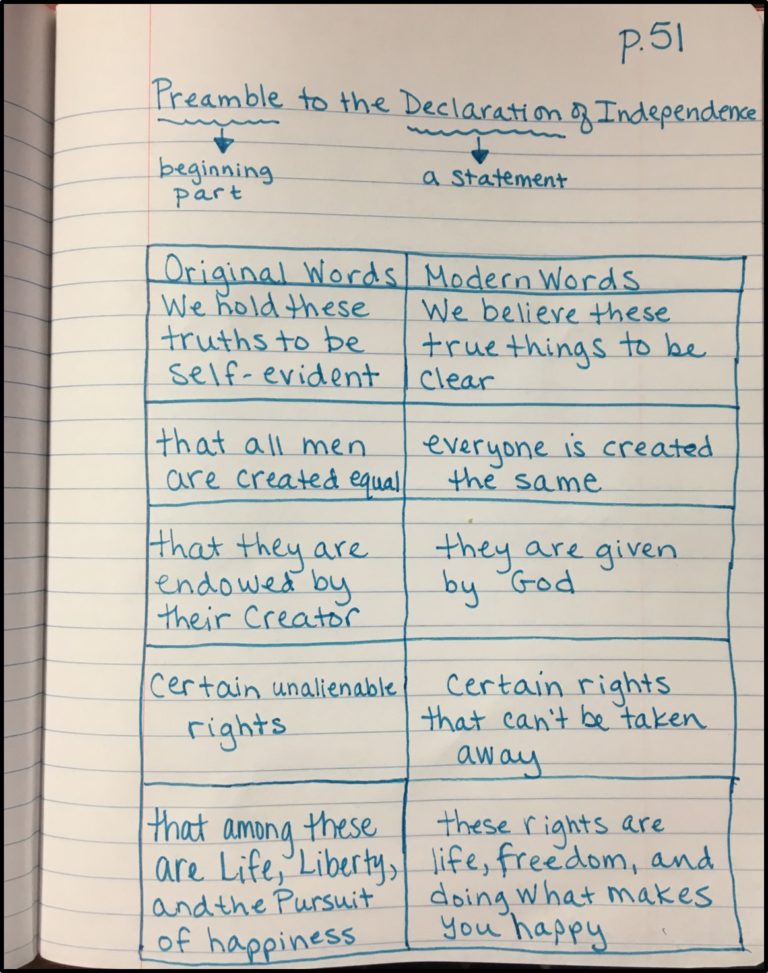 p.51
Preamble to the Declaration of Independence
beginning
part
a statement
Original Words
We hold these
truths to be
self-evident
Modern Words
We believe these
true things to be
clear
that all men
are created equal
everyone is created
the same
that they are
endowed by
their Creator
they are given
by God
Certain unalienable
rights
Certain rights
that can't be taken
away
that among these
are Life, Liberty,
and the Pursuit
of happiness
these rights are
life, freedom, and
doing what makes
you happy